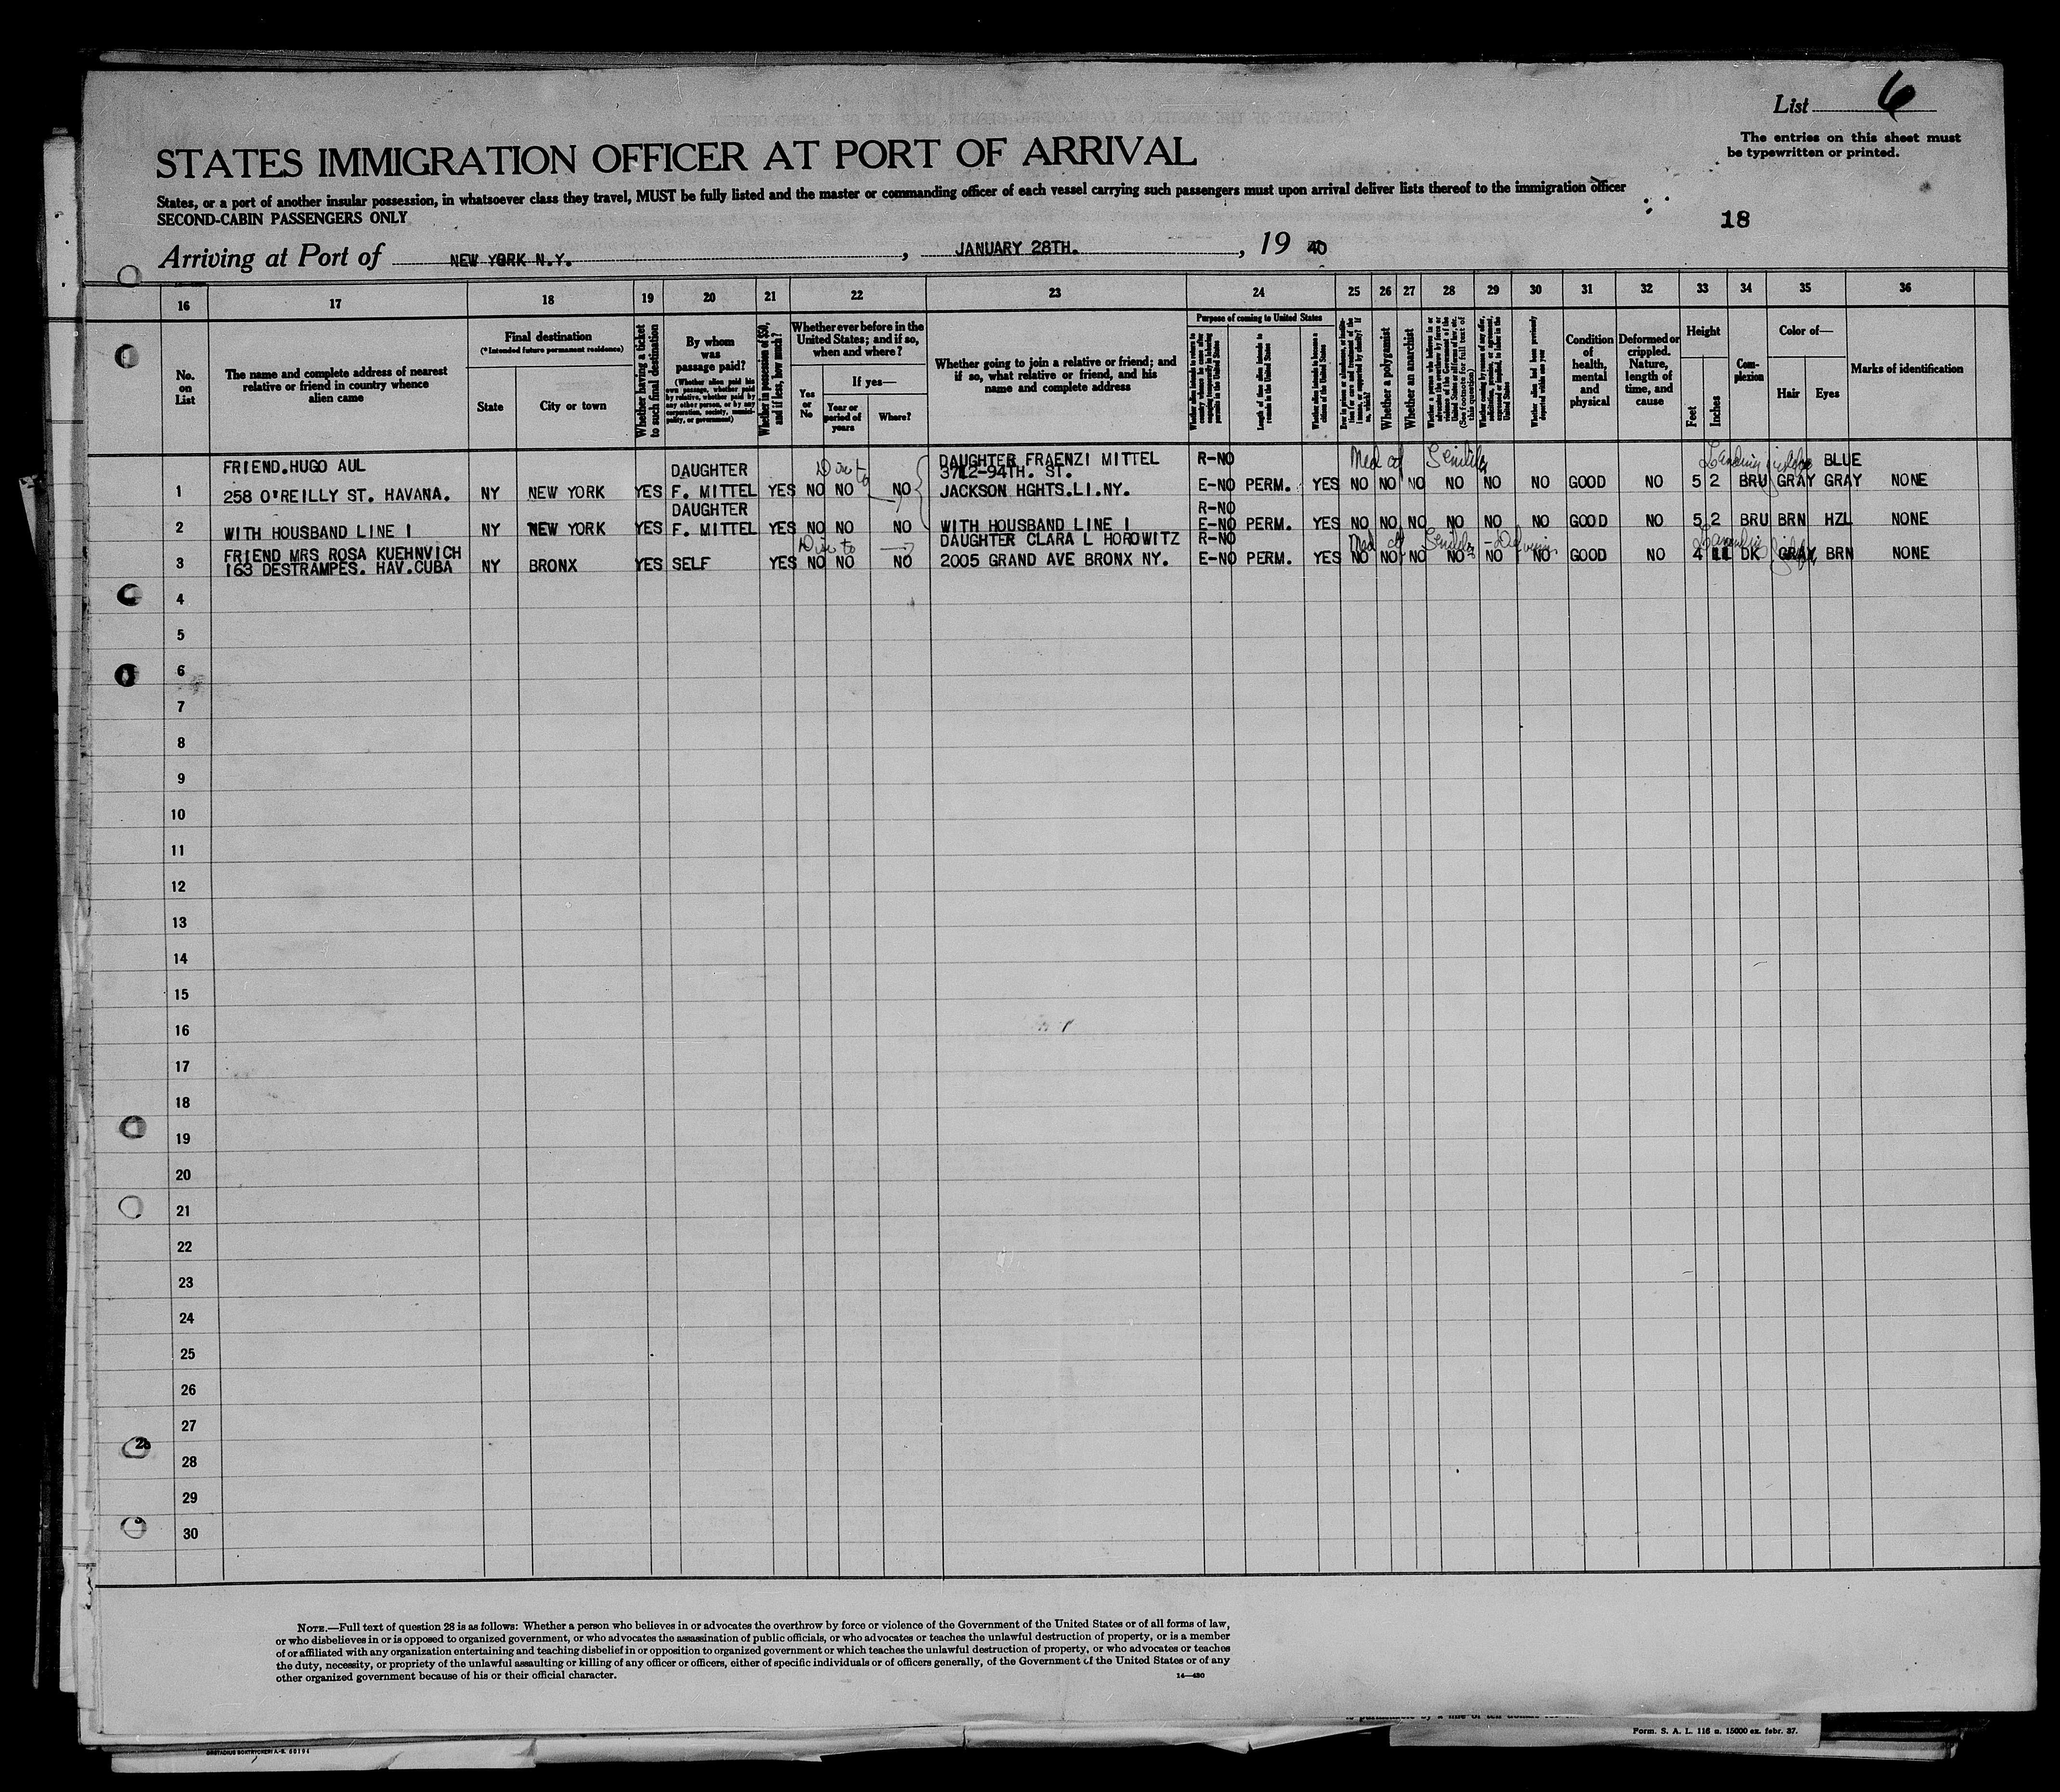 List 6
The entries on this sheet must
be typewritten or printed.
STATES IMMIGRATION OFFICER AT PORT OF ARRIVAL
States, or a port of another insular possession, in whatsoever class they travel, MUST be fully listed and the master or commanding officer of each vessel carrying such passengers must upon arrival deliver lists thereof to the immigration officer
SECOND-CABIN PASSENGERS ONLY
18
Arriving at Port of NEW YORK N.Y. , JANUARY 28TH. , 19 40
16 17 18 19 20 21 22 23 24 25 26 27 28 29 30 31 32 33 34 35 36
No. on List
The name and complete address of nearest relative or friend in country whence alien came
Final destination
(*Intended future permanent residence)
State
City or town
Whether having a ticket to such final destination
By whom was passage paid?
(Whether alien paid his own passage, whether paid by relative, whether paid by any other person, or by any corporation, society, municipality, or government)
Whether in possession of $50, and if less, how much?
Whether ever before in the United States; and if so, when and where?
Yes or No
If yes—
Year or period of years
Where?
Whether going to join a relative or friend; and if so, what relative or friend, and his name and complete address
Purpose of coming to United States
Length of time alien intends to remain in the United States
Whether alien intends to become a citizen of the United States
Whether a polygamist
Whether an anarchist
Whether alien had been previously deported within one year
Condition of health, mental and physical
Deformed or crippled. Nature, length of time, and cause
Height
Feet
Inches
Complexion
Color of—
Hair
Eyes
Marks of identification
FRIEND.HUGO AUL DAUGHTER DAUGHTER FRAENZI MITTEL R-NO Med cf Senility BLUE
3712-94TH. ST.
1 258 O'REILLY ST. HAVANA. NY NEW YORK YES F. MITTEL YES NO NO NO JACKSON HGHTS.LI.NY. E-NO PERM. YES NO NO NO NO NO NO GOOD NO 5 2 BRU GRAY GRAY NONE
DAUGHTER R-NO
2 WITH HOUSBAND LINE 1 NY NEW YORK YES F. MITTEL YES NO NO NO WITH HOUSBAND LINE 1 E-NO PERM. YES NO NO NO NO NO NO GOOD NO 5 2 BRU BRN HZL NONE
FRIEND MRS ROSA KUEHNVICH DAUGHTER CLARA L HOROWITZ R-NO Med cf Senility
3 163 DESTRAMPES. HAV.CUBA NY BRONX YES SELF YES NO NO NO 2005 GRAND AVE BRONX NY. E-NO PERM. YES NO NO NO NO NO NO GOOD NO 4 11 DK GRAY BRN NONE
4
5
6
7
8
9
10
11
12
13
14
15
16
17
18
19
20
21
22
23
24
25
26
27
28
29
30
NOTE.—Full text of question 28 is as follows: Whether a person who believes in or advocates the overthrow by force or violence of the Government of the United States or of all forms of law,
or who disbelieves in or is opposed to organized government, or who advocates the assassination of public officials, or who advocates or teaches the unlawful destruction of property, or is a member
of or affiliated with any organization entertaining and teaching disbelief in or opposition to organized government or which teaches the unlawful destruction of property, or who advocates or teaches
the duty, necessity, or propriety of the unlawful assaulting or killing of any officer or officers, either of specific individuals or of officers generally, of the Government of the United States or of any
other organized government because of his or their official character.
14—430
Form. S. A. L. 116 a. 15000 ex. febr. 37.